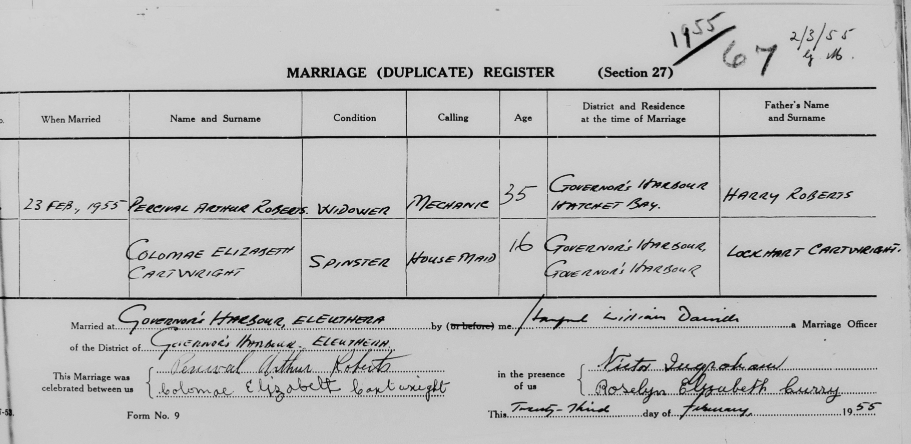 1955/67 2/3/55
MARRIAGE (DUPLICATE) REGISTER (Section 27)
When Married Name and Surname Condition Calling Age District and Residence at the time of Marriage Father's Name and Surname
23 FEB, 1955 PERCIVAL ARTHUR ROBERTS. WIDOWER MECHANIC 35 GOVERNOR'S HARBOUR HATCHET BAY. HARRY ROBERTS
COLOMAE ELIZABETH CARTWRIGHT SPINSTER HOUSE MAID 16 GOVERNOR'S HARBOUR, GOVERNOR'S HARBOUR LOCKHART CARTWRIGHT.
Married at GOVERNOR'S HARBOUR, ELEUTHERA by (or before) me William a Marriage Officer
of the District of GOVERNOR'S HARBOUR. ELEUTHERA.
This Marriage was celebrated between us Percival Arthur Roberts
Colomae Elizabeth Cartwright
in the presence of us Victor Ingraham
Roselyn Elizabeth Curry
Form No. 9 This Twenty-Third day of February 1955